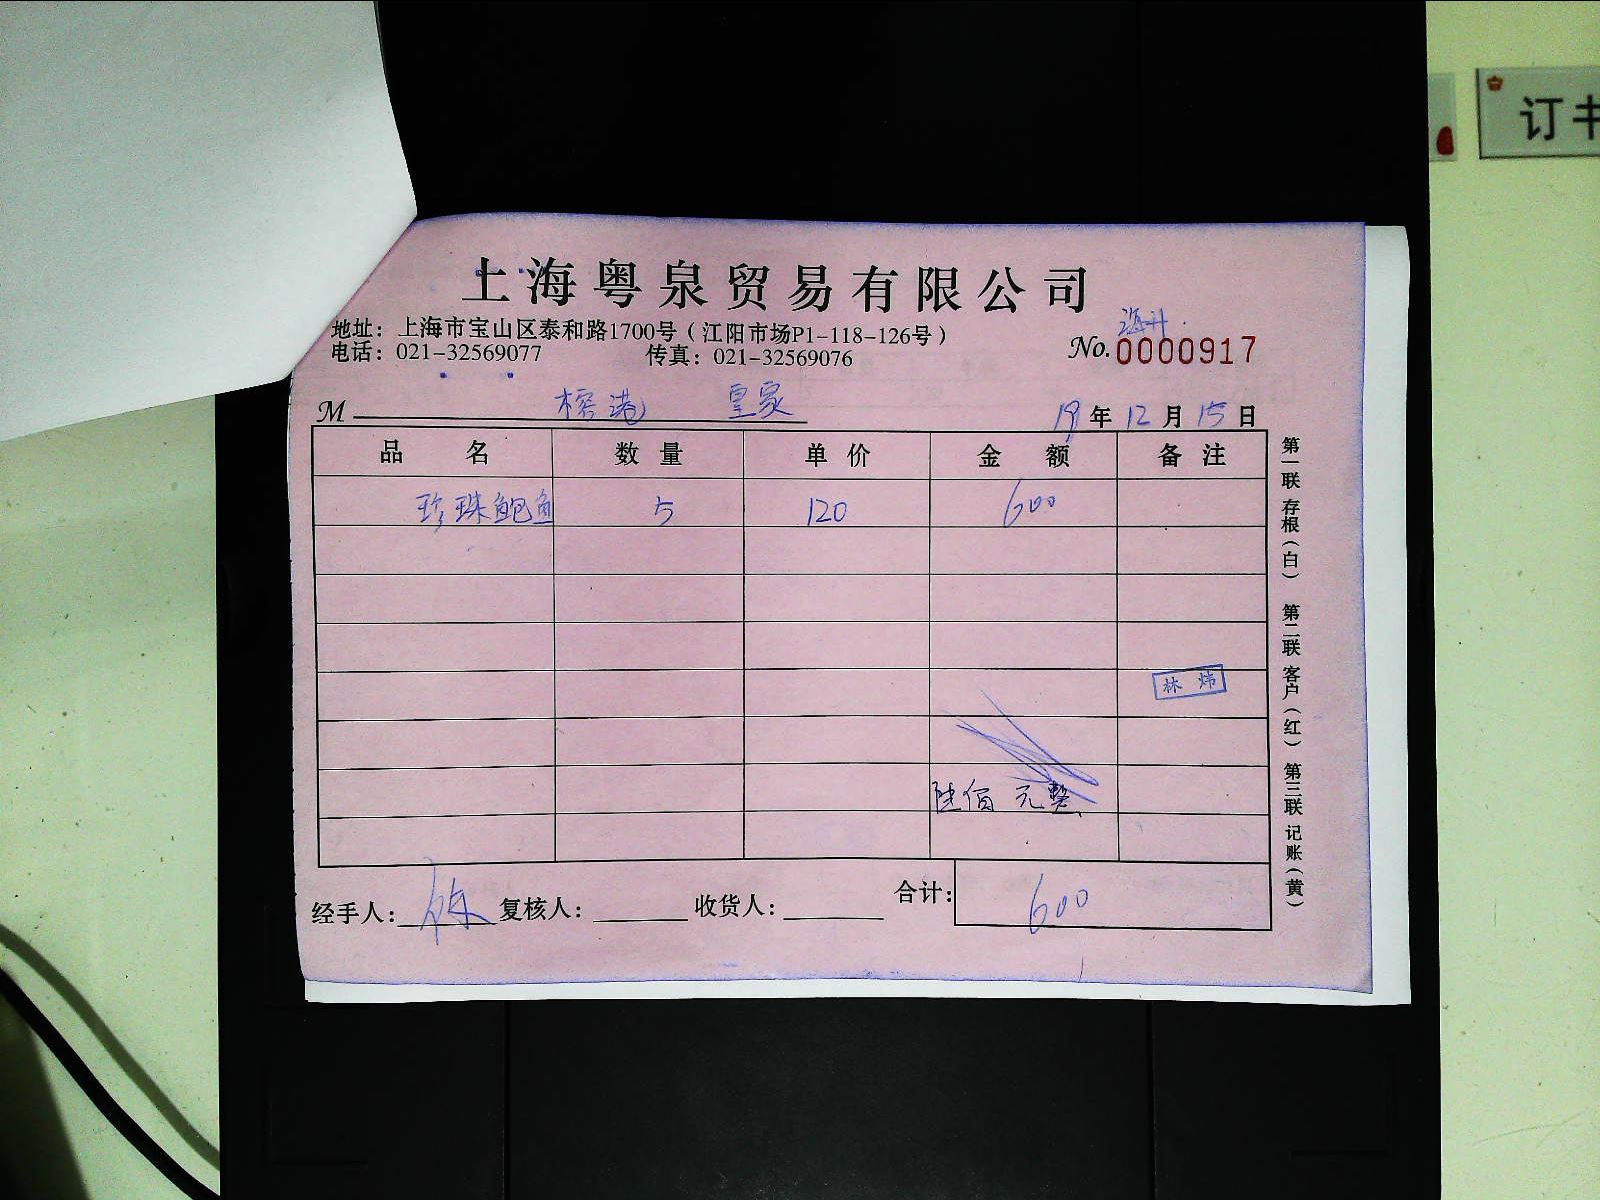 订书
上海粤泉贸易有限公司
地址：上海市宝山区泰和路1700号（江阳市场P1-118-126号）
海升
电话：021-32569077 传真：021-32569076 No.0000917
M 榕港 皇家 19年12月15日
品名 数量 单价 金额 备注
珍珠鲍鱼 5 120 600
林炜
陆佰元整
经手人： 复核人： 收货人： 合计：600
第一联 存根（白） 第二联 客户（红） 第三联 记账（黄）